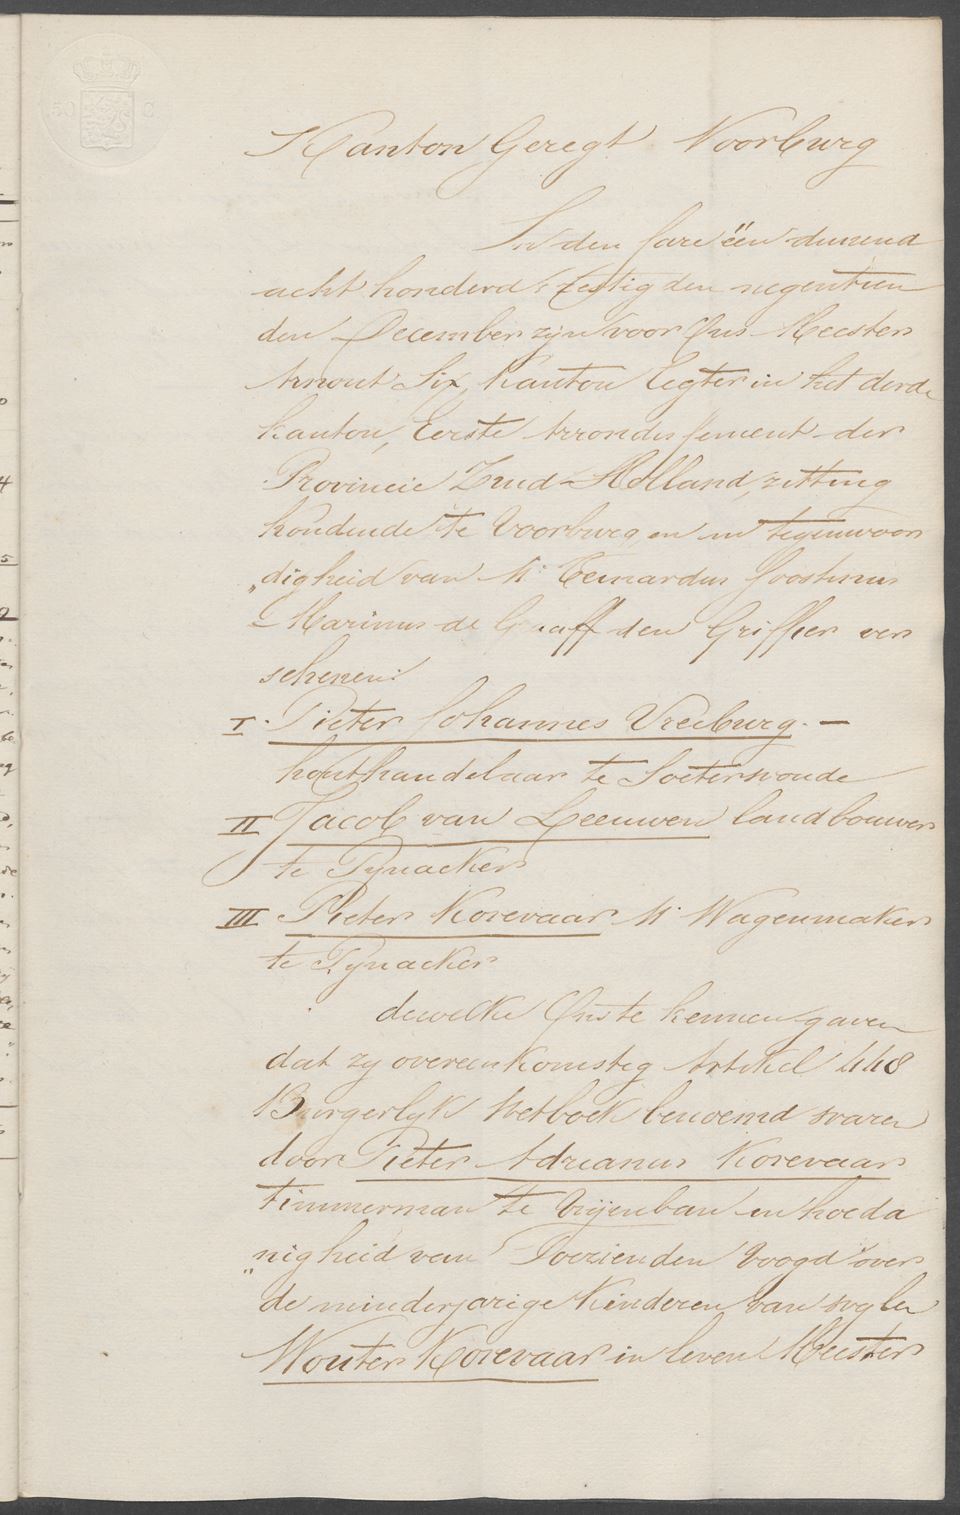 50 C
Kanton Geregt Voorburg
In den Jare één duizend
acht honderd zestig den negentien
den December zijn voor Ons Meester
Arnout Six, Kanton Regter in het derde
kanton, Eerste Arrondissement der
Provincie Zuid-Holland, zitting
houdende te Voorburg en in tegenwoor
„digheid van Mr Bernardus Joostinus
Marinus de Graaff den Griffier ver
schenen:
I. Pieter Johannes Vreeburg. —
houthandelaar te Soeterwoude
II Jacob van Leeuwen landbouwer
te Pijnacker
III Pieter Korevaar Mr Wagenmaker
te Pijnacker
dewelke Ons te kennen gaven
dat zij overeenkomstig Artikel 448
Burgerlijk Wetboek benoemd waren
door Pieter Adrianus Korevaar
timmerman te Vrijenban in hoeda
„nigheid van Toezienden Voogd over
de minderjarige Kinderen van wijlen
Wouter Korevaar in leven Meester